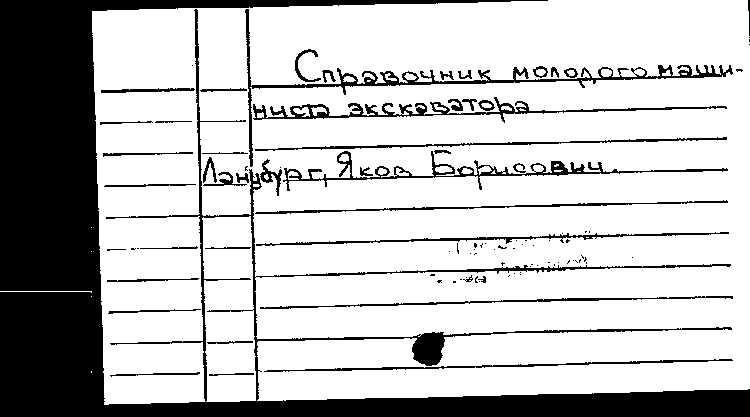 Справочник молодого маши-
ниста экскаватора.
Яков Борисович.